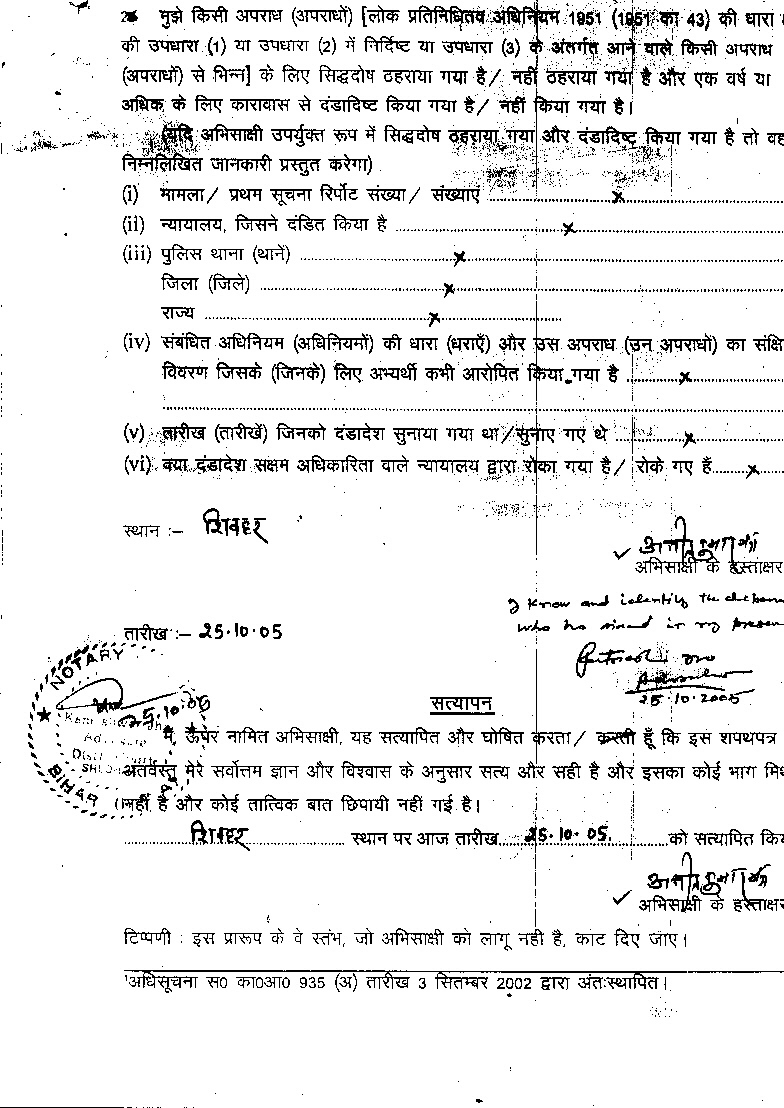 मुझे किसी अपराध (अपराधों) [लोक प्रतिनिधित्व अधिनियम 1951 (1951 का 43) की धारा
की उपधारा (1) या उपधारा (2) में निर्दिष्ट या उपधारा (3) के अंतर्गत आने वाले किसी अपराध
(अपराधों) से भिन्न] के लिए सिद्धदोष ठहराया गया है / नहीं ठहराया गया है और एक वर्ष या
अधिक के लिए कारावास से दंडादिष्ट किया गया है / नहीं किया गया है।
(यदि अभिसाक्षी उपर्युक्त रूप में सिद्धदोष ठहराया गया और दंडादिष्ट किया गया है तो वह
निम्नलिखित जानकारी प्रस्तुत करेगा)
(i) मामला / प्रथम सूचना रिर्पोट संख्या / संख्याएं ..........x..........
(ii) न्यायालय, जिसने दंडित किया है ..........x..........
(iii) पुलिस थाना (थानें) ..........x..........
जिला (जिले) ..........x..........
राज्य ..........x..........
(iv) संबंधित अधिनियम (अधिनियमों) की धारा (धराएँ) और उस अपराध (उन अपराधों) का संक्षि
विवरण जिसके (जिनके) लिए अभ्यर्थी कभी आरोपित किया गया है ..........x..........
(v) तारीख (तारीखें) जिनको दंडादेश सुनाया गया था / सुनाए गए थे ..........x..........
(vi) क्या दंडादेश सक्षम अधिकारिता वाले न्यायालय द्वारा रोका गया है / रोके गए हैं..........x
स्थान :– शिवहर
अभिसाक्षी के हस्ताक्षर
I know and identify the
who has signed in my presen
तारीख :– 25.10.05
Advocate
25.10.2005
NOTARY
25.10.05
BIHAR
सत्यापन
मैं, ऊपर नामित अभिसाक्षी, यह सत्यापित और घोषित करता / करती हूँ कि इस शपथपत्र
अंतर्वस्तु मेरे सर्वोत्तम ज्ञान और विश्वास के अनुसार सत्य और सही है और इसका कोई भाग मि
नहीं है और कोई तात्विक बात छिपायी नहीं गई है।
..........शिवहर.......... स्थान पर आज तारीख.....25.10.05...........को सत्यापित कि
अभिसाक्षी के हस्ताक्षर
टिप्पणी : इस प्रारूप के वे स्तंभ, जो अभिसाक्षी को लागू नही है, काट दिए जाए।
¹अधिसूचना स0 का0आ0 935 (अ) तारीख 3 सितम्बर 2002 द्वारा अंतःस्थापित।